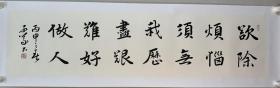 欲除
煩惱
須無
我歷
盡艱
難好
做人
丙申之秋